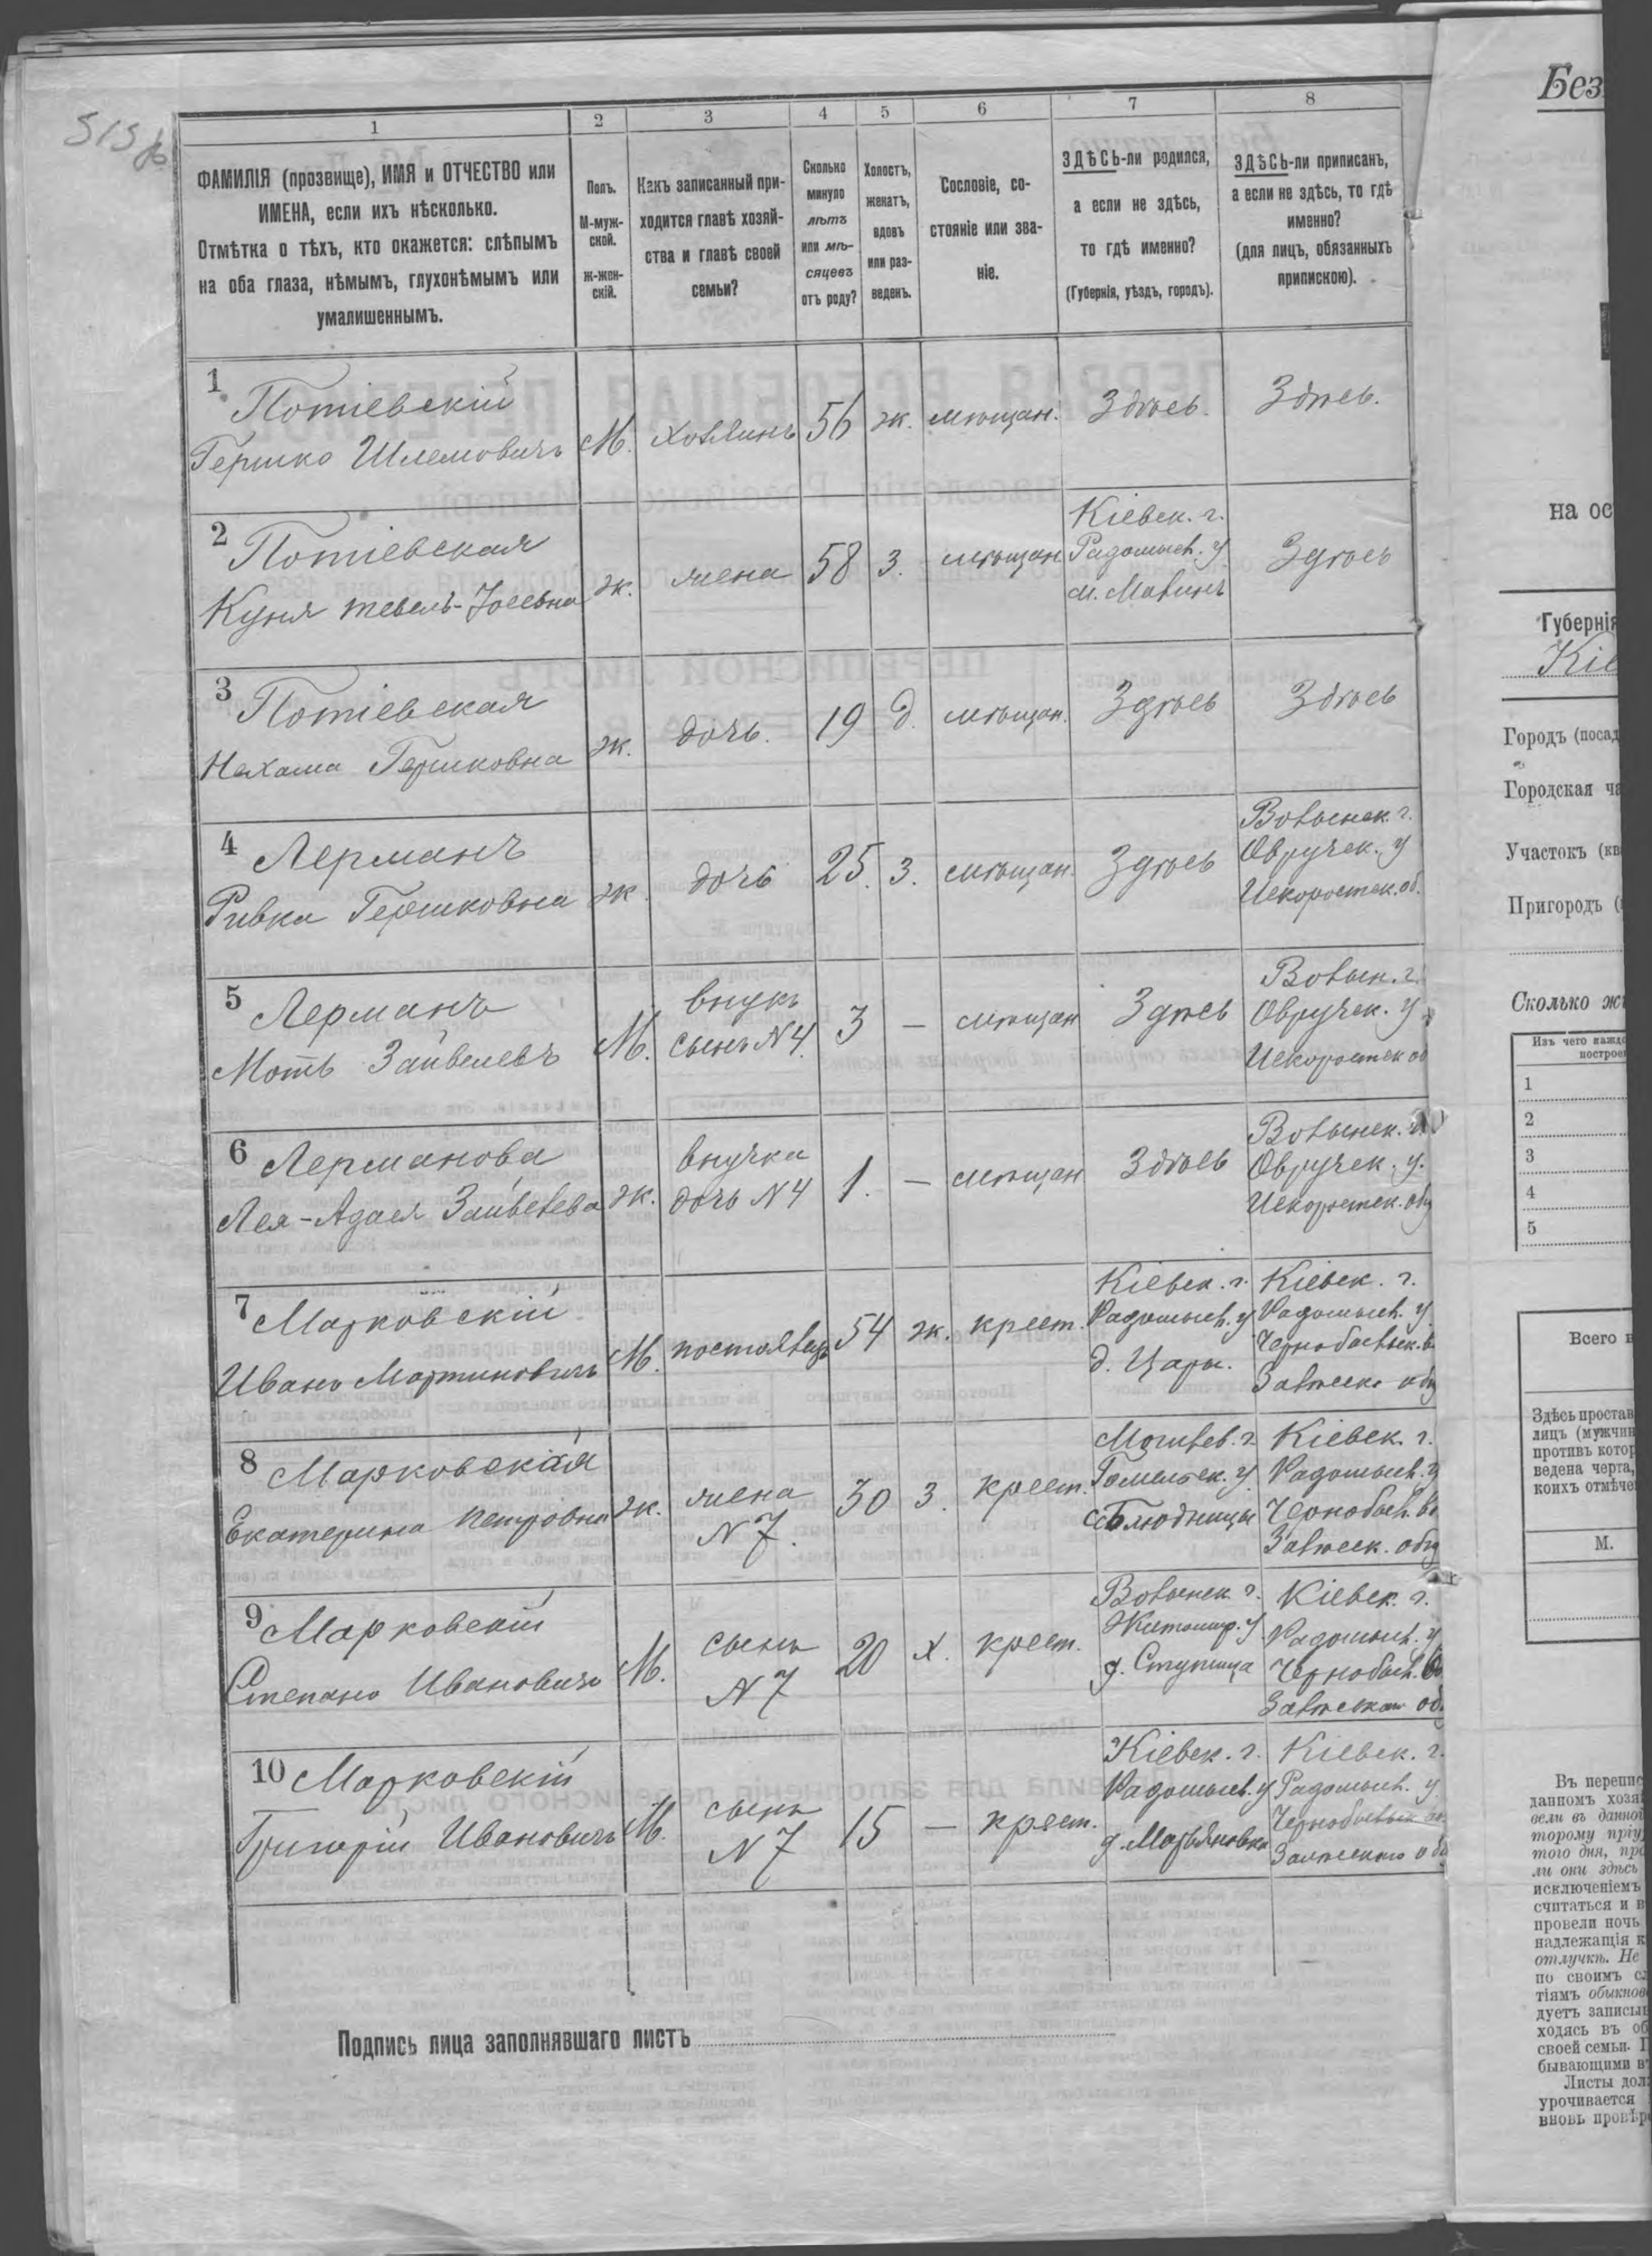 515 об
1
2
3
4
5
6
7
8
ФАМИЛІЯ (прозвище), ИМЯ и ОТЧЕСТВО или
ИМЕНА, если ихъ нѣсколько.
Отмѣтка о тѣхъ, кто окажется: слѣпымъ
на оба глаза, нѣмымъ, глухонѣмымъ или
умалишеннымъ.
Полъ.
М-муж-
ской.
ж-жен-
скій.
Какъ записанный при-
ходится главѣ хозяй-
ства и главѣ своей
семьи?
Сколько
минуло
лѣтъ
или мѣ-
сяцевъ
отъ роду?
Холостъ,
женатъ,
вдовъ
или раз-
веденъ.
Сословіе, со-
стояніе или зва-
ніе.
ЗДѢСЬ-ли родился,
а если не здѣсь,
то гдѣ именно?
(Губернія, уѣздъ, городъ).
ЗДѢСЬ-ли приписанъ,
а если не здѣсь, то гдѣ
именно?
(для лицъ, обязанныхъ
припискою).
1
Потіевскій
Гершко Шлемовичъ
М.
хозяинъ
56
ж.
мѣщан.
Здѣсь.
Здѣсь.
2
Потіевская
Куня Тевель-Іосевна
ж.
жена
58
з.
мѣщан
Кіевск. г.
Радомысл. у
м. Малинъ
Здѣсь
3
Потіевская
Нехама Гершковна
ж.
дочь.
19
д.
мѣщан.
Здѣсь
Здѣсь
4
Лерманъ
Ривка Гершковна
ж.
дочь
25.
з.
мѣщан.
Здѣсь
Волынск. г.
Овручск. у
Искоростск. об.
5
Лерманъ
Моть Зайвелевъ
М.
внукъ
сынъ N 4.
3
—
мѣщан
Здѣсь
Волын. г.
Овручск. у.
Искоростск об
6
Лерманова
Лея-Адася Зайвелева
ж.
внучка
дочь N 4
1.
—
мѣщан
Здѣсь
Волынск. г.
Овручск. у.
Искоростск. общ
7
Марковскій
Иванъ Мартиновичъ
М.
постоялецъ
54
ж.
крест.
Кіевск. г.
Радомысл. у
д. Цары.
Кіевск. г.
Радомысл. у.
Чернобыльск. в.
Залѣсск. общ
8
Марковская
Екатерина Петровна
ж.
жена
N 7.
30
з.
крест.
Могилев. г.
Гомельск. у.
с. Блюдницы
Кіевск. г.
Радомысл. у
Чернобыл. во
Залѣсск. общ
9
Марковскій
Степанъ Ивановичъ
М.
сынъ
N 7
20
х.
крест.
Волынск. г.
Житомир. у
д. Ступища
Кіевск. г.
Радомысл. у
Чернобыл. во
Залѣсскаго об.
10
Марковскій
Григорій Ивановичъ
М.
сынъ
N 7
15
—
крест.
Кіевск. г.
Радомысл. у
д. Марьяновка
Кіевск. г.
Радомысл. у
Чернобыльск во.
Залѣсскаго об
Подпись лица заполнявшаго листъ
Без
на ос
Губернія
Кіе
Городъ (посад
Городская ча
Участокъ (кв
Пригородъ (
Сколько жи
Изъ чего каждо
построе
1
2
3
4
5
Всего н
Здѣсь простав
лицъ (мужчин
противъ котор
ведена черта,
коихъ отмѣче
М.
Въ перепис
данномъ хозяй
вели въ данно
торому пріу
того дня, про
ли они здѣсь
исключеніемъ
считаться и в
провели ночь
надлежащія к
отлучкѣ. Не
по своимъ с
тіямъ обыкнов
дуетъ записы
ходясь въ об
своей семьи. П
бывающими въ
Листы дол
урочивается
вновь провѣр